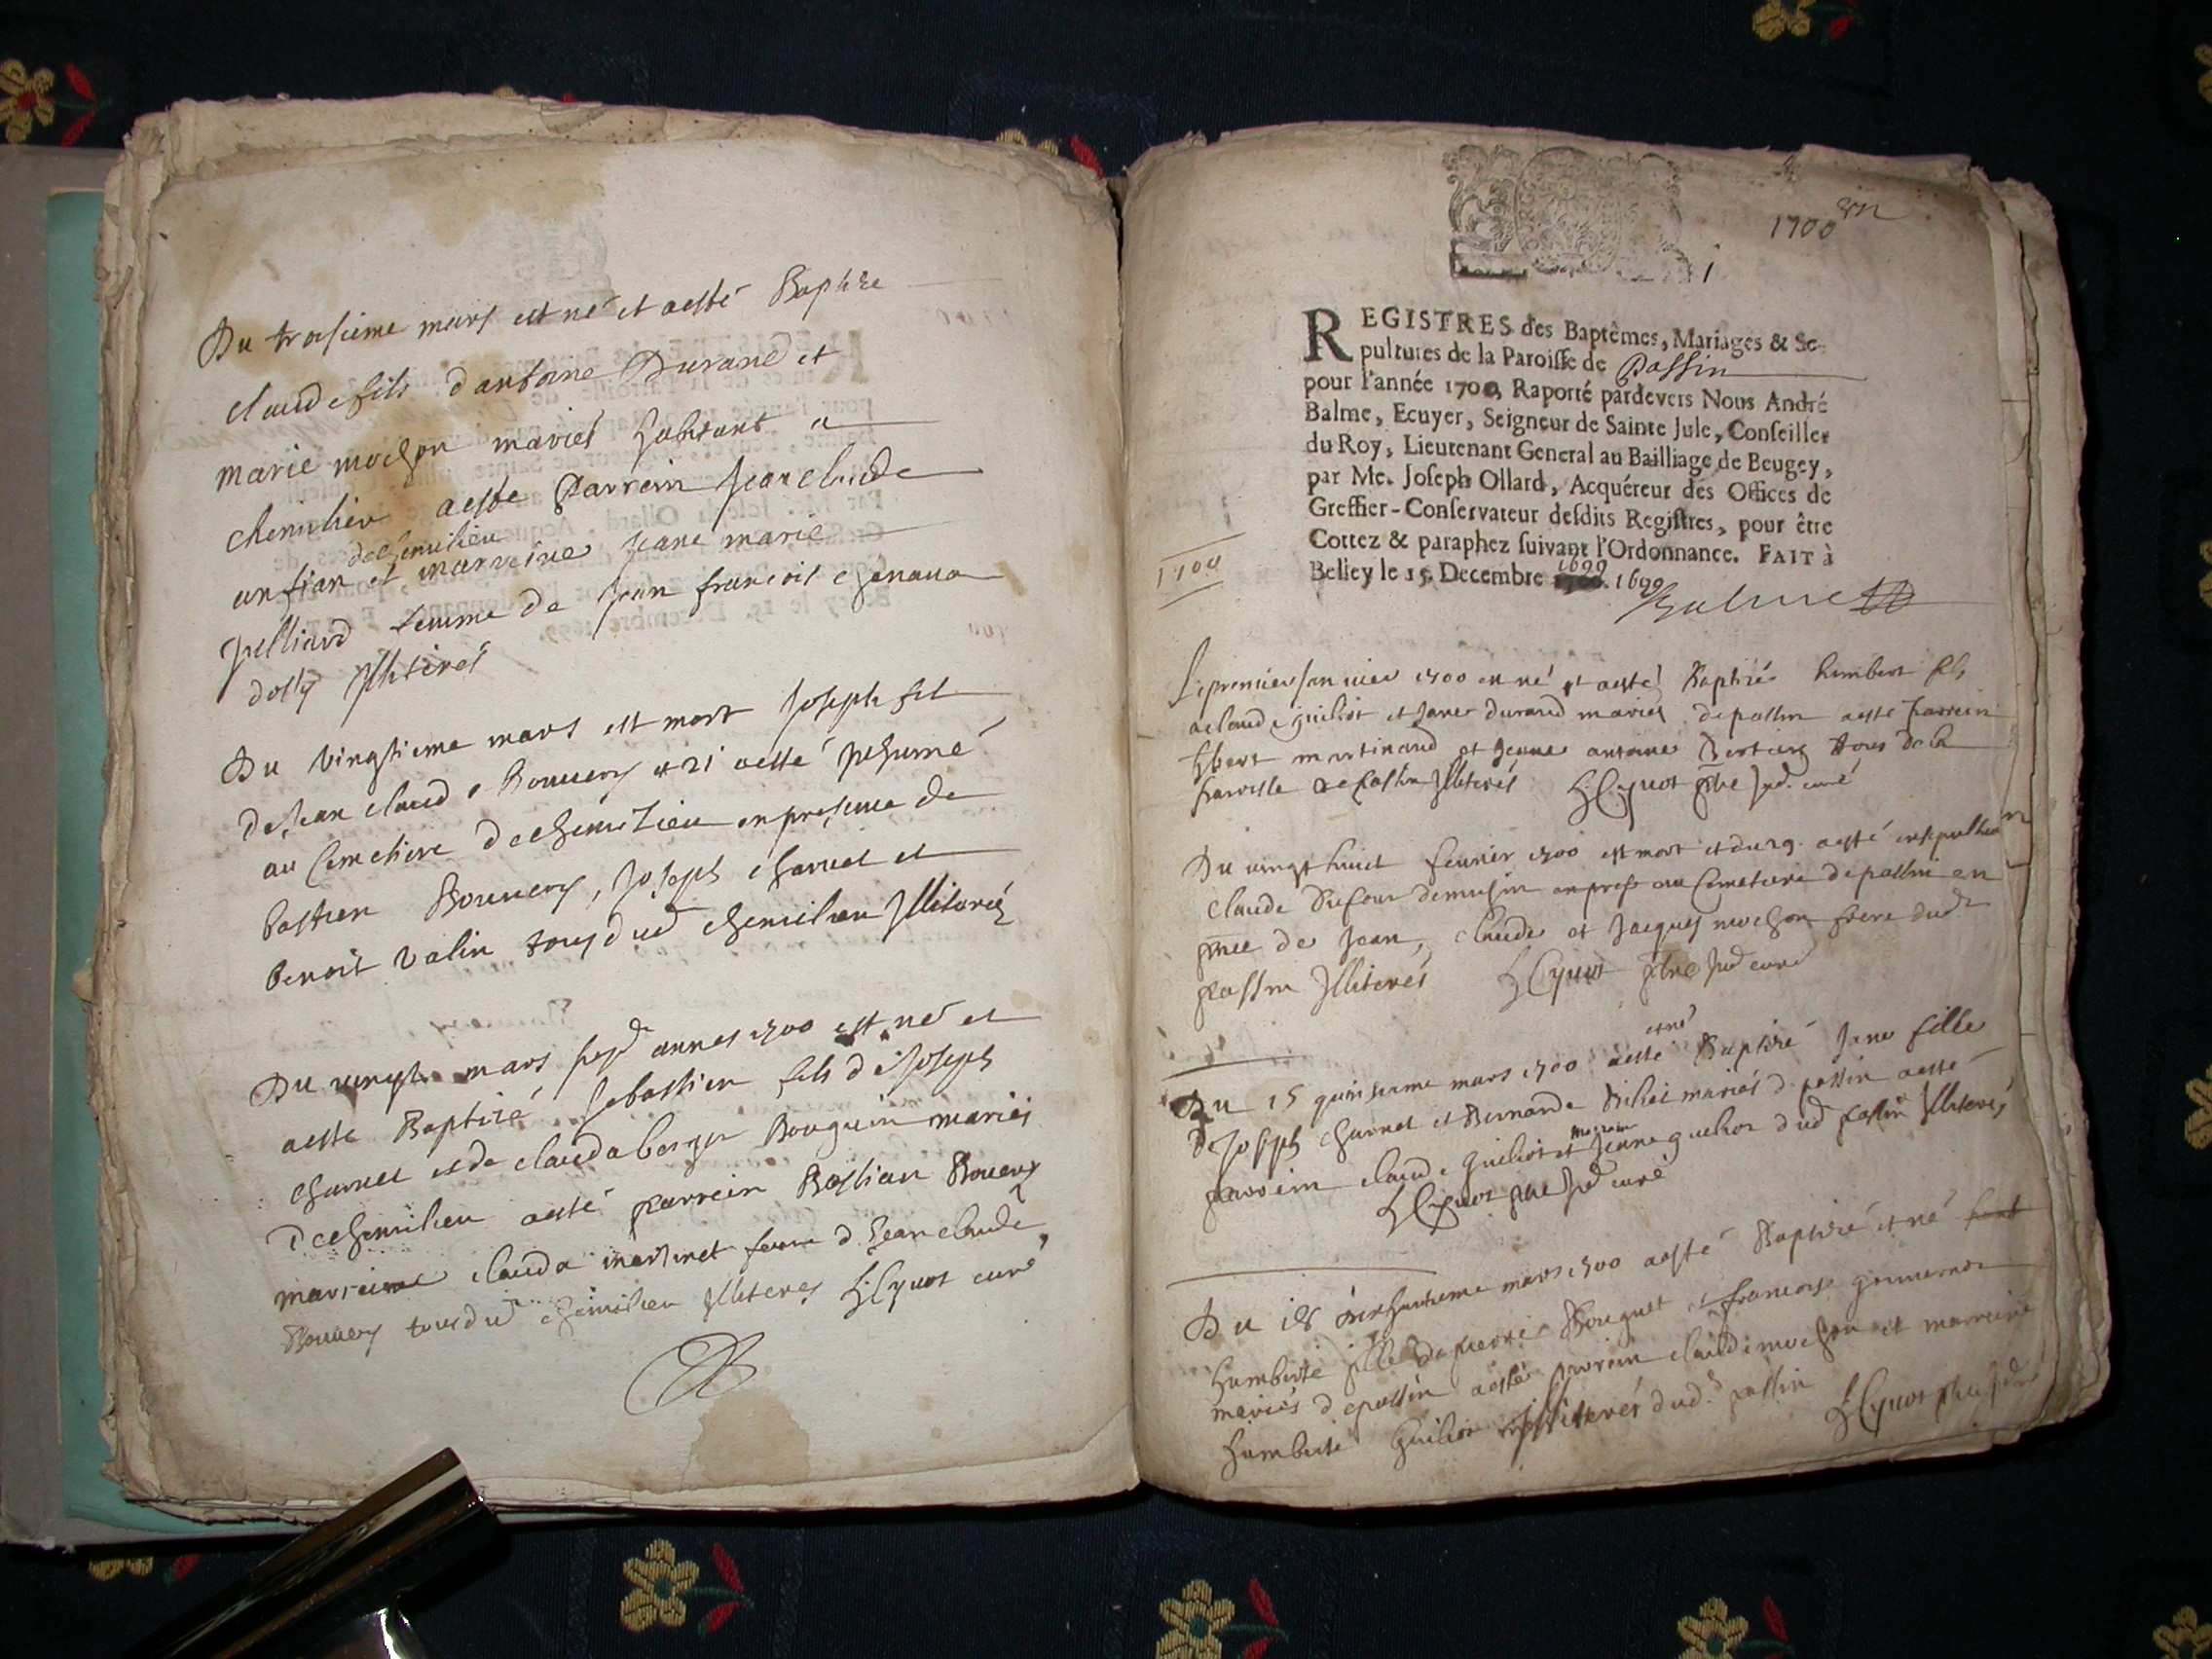 Du troisieme mars est né et aesté Baptize
claude fils d'antoine Durand et
marie mochon mariés habitant a
chemilieu aesté Parrein Jean claude
anfian et marreine Jeane marie
dechemilieu
Juilliard femme de Jean francois
dostz Illiterés
Du vingtieme mars est mort Joseph fils
de Jean claude Bouuery et 21 aesté Inhumé
au Cemetiere dechemilieu en presence de
bastien Bouuery, Joseph charuet et
benoit valin tous dud chemilieu Illiterés
Du vingt mars annee 1700 est né et
aesté Baptizé sebastien fils de Joseph
charuet et de clauda berger Bouguin mariés
dechemilieu aesté parrein Bastian Bouery
marreine clauda martinet feme d Jean claude
Bouuery tous dud chemilieu Illiteres Cyuot curé
1700
1
REGISTRES des Baptêmes, Mariages & Se-
pultures de la Paroisse de Passin
pour l'année 1700, Raporté pardevers Nous André
Balme, Ecuyer, Seigneur de Sainte Jule, Conseiller
du Roy, Lieutenant General au Bailliage de Beugey,
par Me. Joseph Ollard, Acquéreur des Offices de
Greffier-Conservateur desdits Registres, pour être
Cottez & paraphez suivant l'Ordonnance. FAIT à
Belley le 15. Decembre 1699 1699
Balme
1700
Le premier Januier 1700 est né et aesté Baptizé humbert fils
a claude guiliot et Jane durand mariés de passin aesté parrein
martinand et Jeane antoine tous de la
parroisse de passin Illiterés Cyuot pbre curé
Du vingt huict feurier 1700 est mort et du 29 aesté ensepulturé
claude Dufour au Cemetiere de passin en
pnce de Jean, claude et Jacques mochon frere dud
passin Illiterés Cyuot pbre curé
Du 15 quinsieme mars 1700 aesté et né Baptizé Jane fille
de Joseph charuet et Bernarde mariés d passin aesté
parrein claude guiliot et marreine Jeane guiliot dud passin Illiterés
Cyuot pbre curé
Du 18 dixhuitieme mars 1700 aesté Baptizé et né
humberte fille de pierre Bouguet et francoise
mariés de passin aesté parrein claude mochon et marreine
humberte guiliot Illiterés dud. passin Cyuot pbre